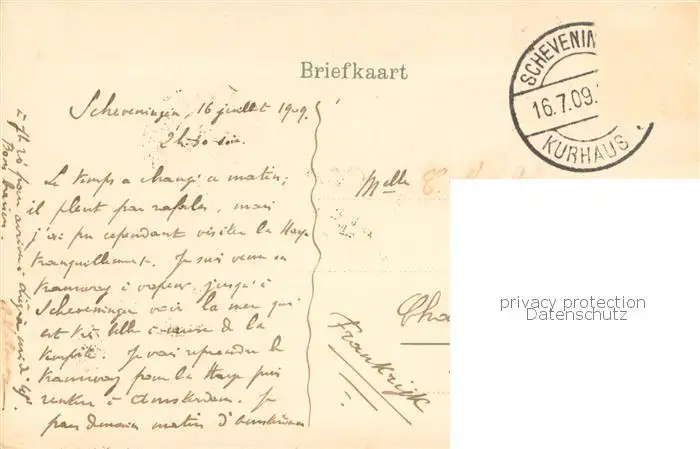 Briefkaart
SCHEVENIN
16.7.09.
KURHAUS
Scheveningen, 16 juillet 1909.
2h.30 soir.
Le temps a changé ce matin;
il pleut par rafales, mais
j'ai pu cependant visiter la Haye
tranquillement. Je suis venu en
tramway à vapeur jusqu'à
Scheveningen voir la mer qui
est très belle à cause de la
tempête. Je vais reprendre le
tramway pour la Haye puis
rentrer à Amsterdam. Je
pars demain matin d'Amsterdam
à 7h
pour arriver à
Bons baisers.
Melle
Cha
Frankrijk
privacy protection
Datenschutz